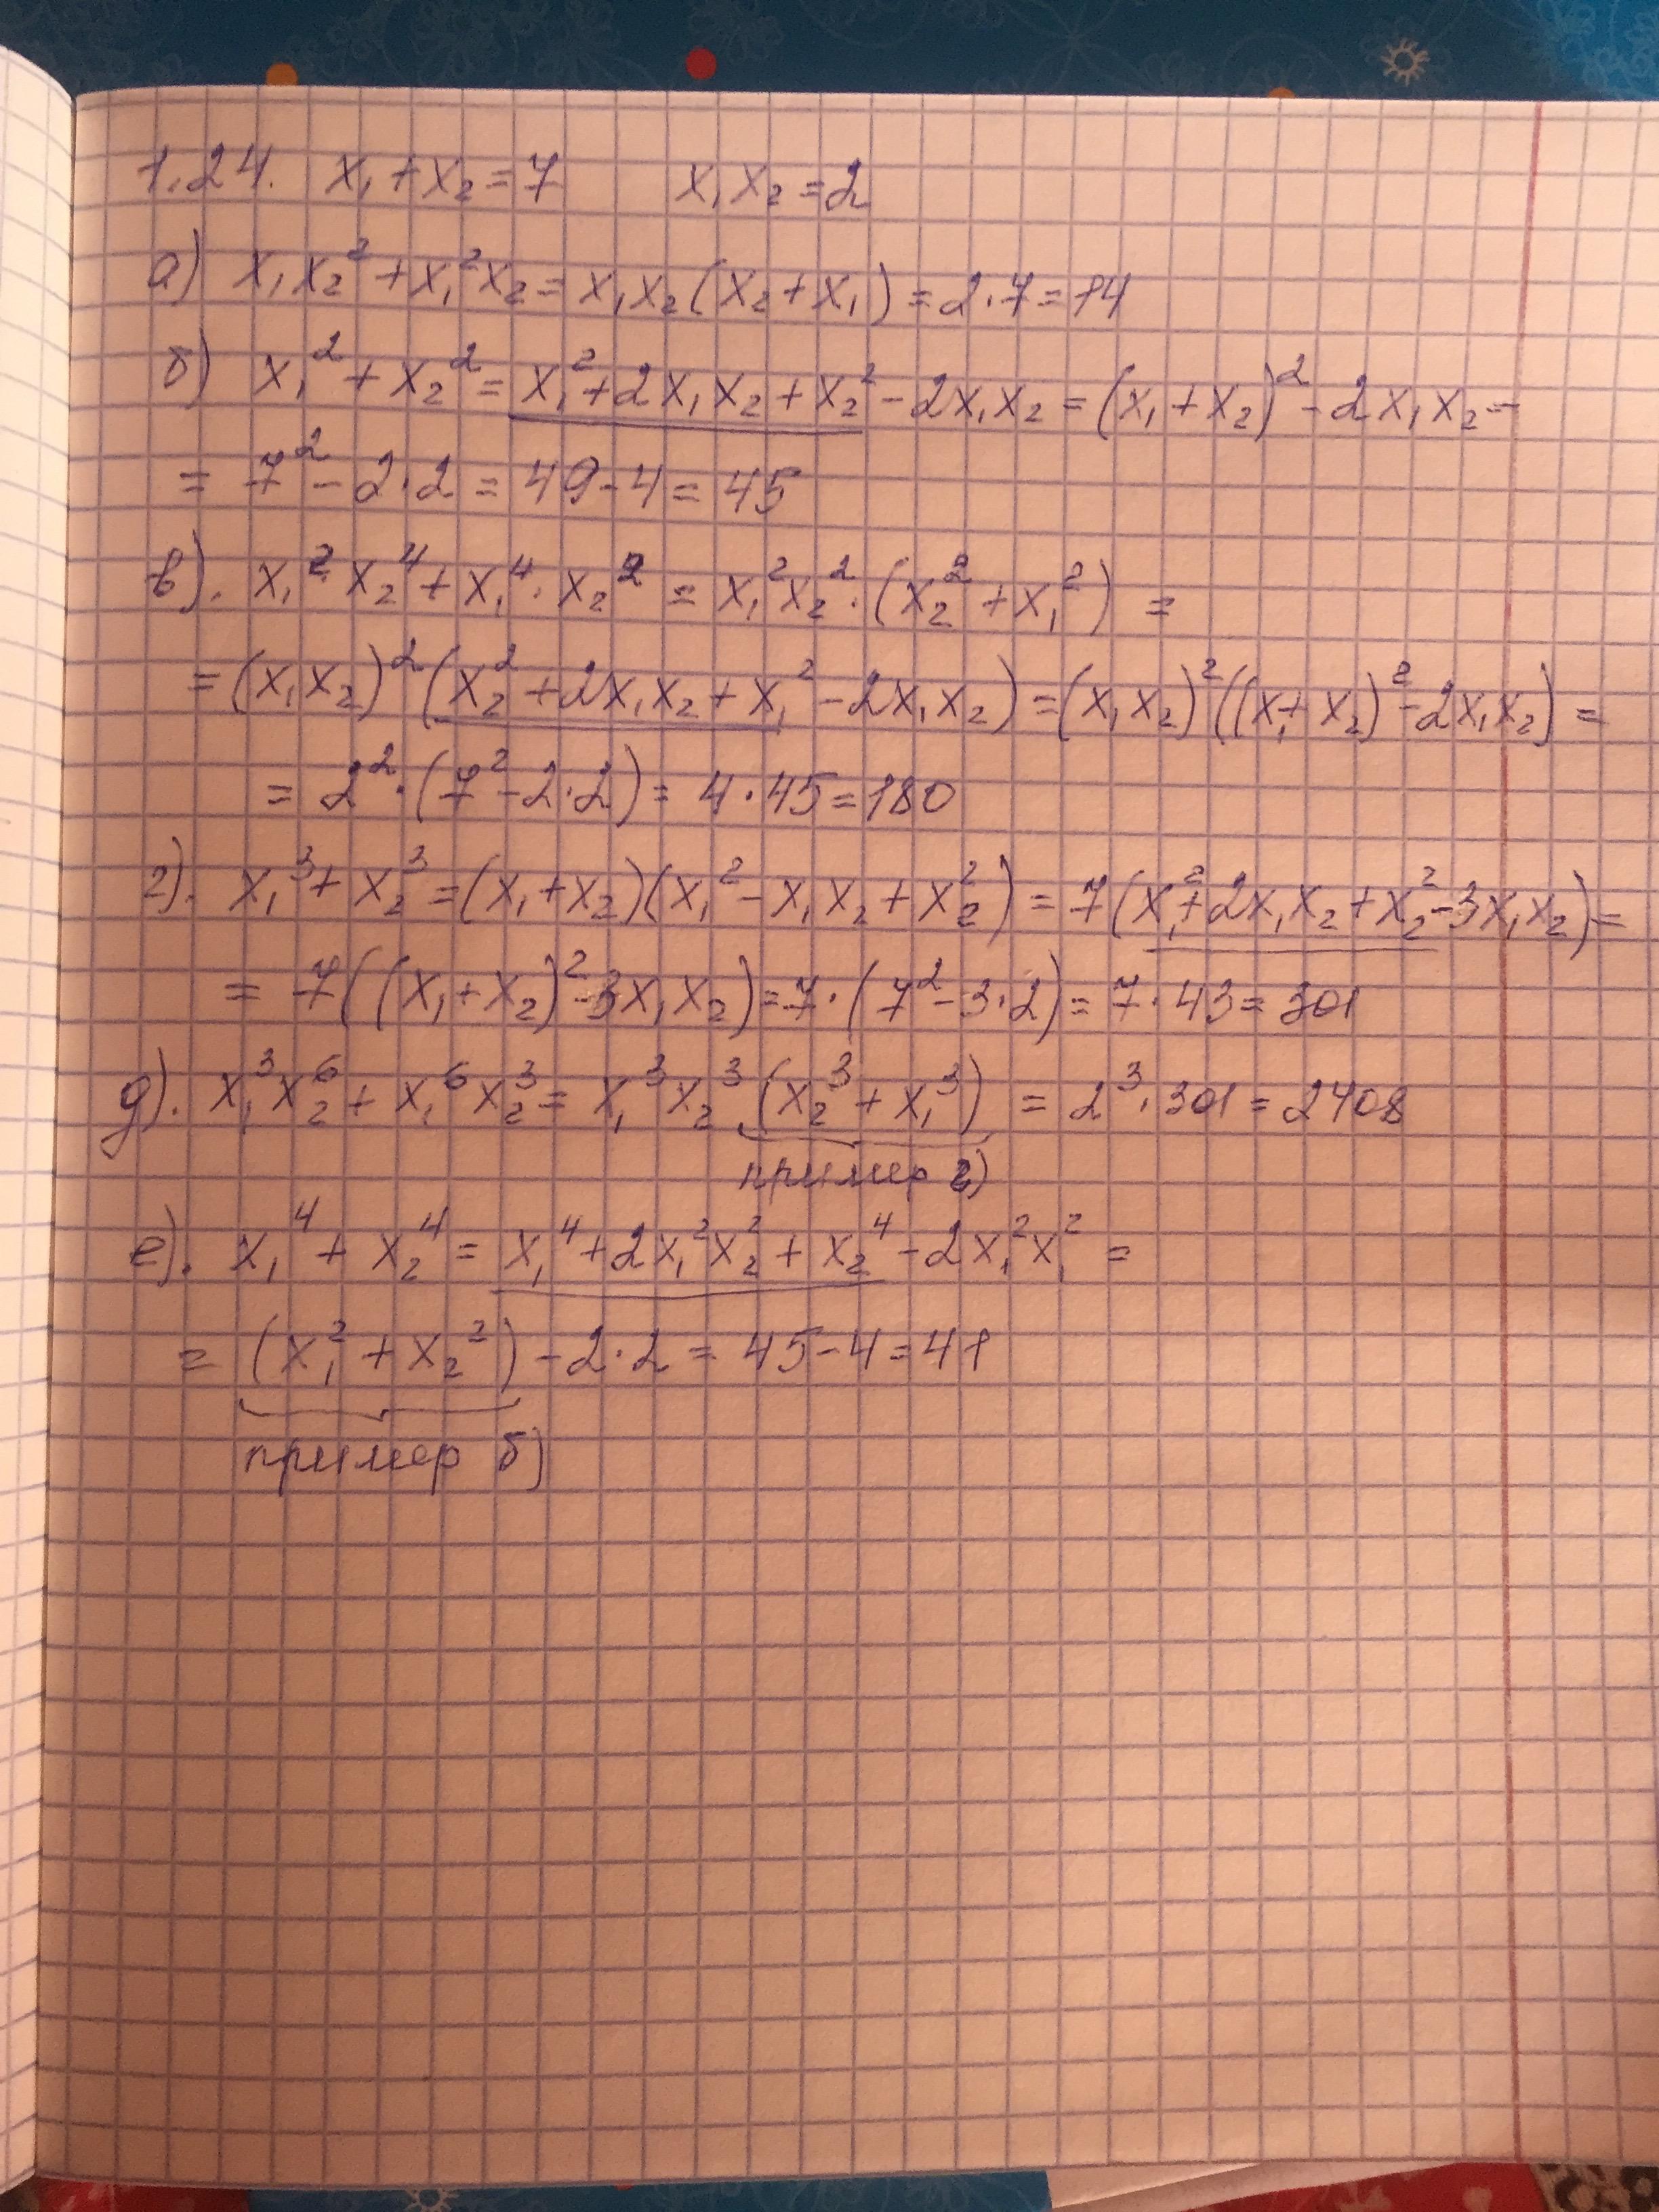 1.24. x₁+x₂=7 x₁x₂=2
а) x₁x₂²+x₁²x₂=x₁x₂(x₂+x₁)=2·7=14
б) x₁²+x₂²=x₁²+2x₁x₂+x₂²-2x₁x₂=(x₁+x₂)²-2x₁x₂=
=7²-2·2=49-4=45
в). x₁²x₂⁴+x₁⁴·x₂²=x₁²x₂²·(x₂²+x₁²)=
=(x₁x₂)²(x₂²+2x₁x₂+x₁²-2x₁x₂)=(x₁x₂)²((x₁+x₂)²-2x₁x₂)=
=2²·(7²-2·2)=4·45=180
г). x₁³+x₂³=(x₁+x₂)(x₁²-x₁x₂+x₂²)=7(x₁²+2x₁x₂+x₂²-3x₁x₂)=
=7((x₁+x₂)²-3x₁x₂)=7·(7²-3·2)=7·43=301
д). x₁³x₂⁶+x₁⁶x₂³=x₁³x₂³(x₂³+x₁³)=2³·301=2408
пример г)
е). x₁⁴+x₂⁴=x₁⁴+2x₁²x₂²+x₂⁴-2x₁²x₁²=
=(x₁²+x₂²)-2·2=45-4=41
пример б)